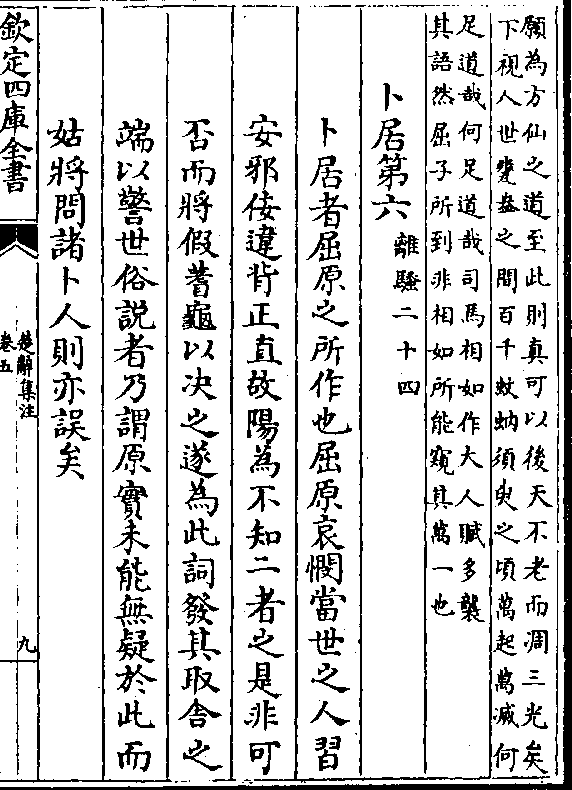 願為方仙之道至此則真可以後天不老而凋三光矣
下視人世甕盎之間百千蚊蚋須臾之頃萬起萬滅何
足道哉何足道哉司馬相如作大人賦多襲
其語然屈子所到非相如所能窺其萬一也
卜居第六 離騷二十四
卜居者屈原之所作也屈原哀憫當世之人習
安邪佞違背正直故陽為不知二者之是非可
否而將假蓍龜以决之遂為此詞發其取舎之
端以警世俗説者乃謂原實未能無疑於此而
姑將問諸卜人則亦誤矣
欽定四庫全書
楚辭集注
卷五
九